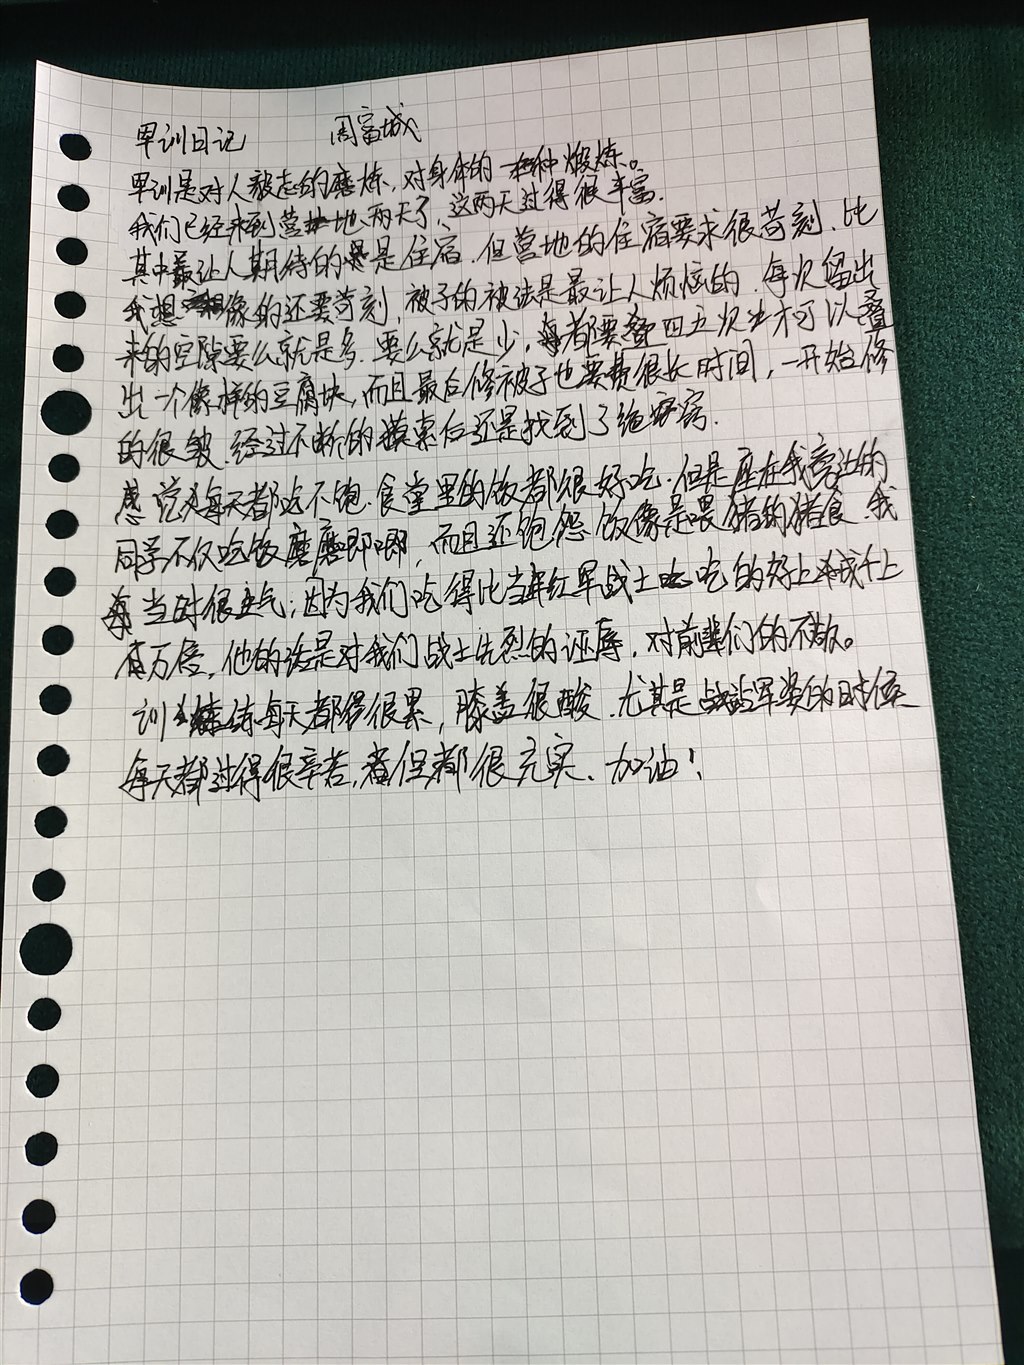 军训日记 周富城
军训是对人毅志的磨炼，对身体的一种煅炼。
我们已经来到营地两天了，这两天过得很丰富.
其中最让人期待的是住宿.但营地的住宿要求很苛刻.比
我想像的还要苛刻，被子的被法是最让人烦恼的.每次留出
来的空隙要么就是多.要么就是少，都要叠四五次才可以叠
出一个像样的豆腐块，而且最后修被子也要费很长时间，一开始修
的很皱.经过不断的摸索后还是找到了绝窍.
感觉每天都吃不饱.食堂里的饭都很好吃.但是座在我旁边的
同学不仅吃饭磨磨唧唧，而且还饱怨饭像是喂猪的猪食.我
当时很生气；因为我们吃得比当年红军战士吃的好上成千上
百万倍，他的话是对我们战士先烈的诬辱，对前辈们的不敬。
训练每天都得很累，膝盖很酸.尤其是站军姿的时候
每天都过得很辛苦，但都很充实、加油！